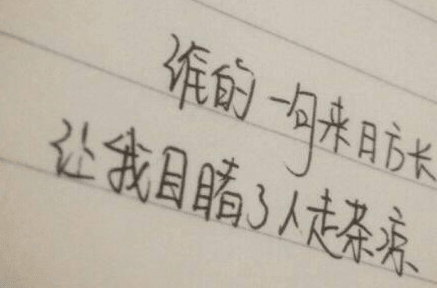 谁的一句来日方长
让我目睹了人走茶凉